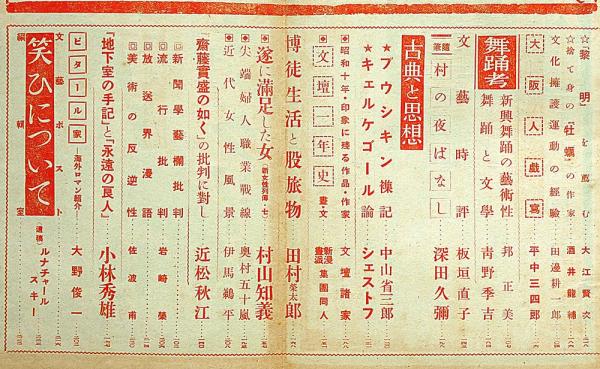 ☆「黎明」を薦む 大江賢次
☆捨て身の「牡蠣」の作家 酒井龍輔
文化擁護運動の經驗 田邊耕一郎
大阪人戯寫 平中三四郎
舞踊考
新興舞踊の藝術性 邦正美
舞踊と文學 青野季吉
文藝時評 板垣直子
隨筆 村の夜ばなし 深田久彌
古典と思想
★プウシキン襍記 中山省三郎
★キェルケゴール論 シェストフ
◆昭和十年・印象に殘る作品・作家 文壇諸家
◆文壇一年史 畫・文 新漫畫派集團同人
博徒生活と股旅物 田村榮太郎
遂に滿足した女(新女性列傳・七) 村山知義
◆尖端婦人職業戰線 奥村五十嵐
◆近代女性風景 伊馬鵜平
「齋藤實盛の如く」の批判に對し 近松秋江
新聞學藝欄批判 岩崎榮
流行批判
放送界漫語
美術の反逆性 佐波甫
「地下室の手記」と「永遠の良人」 小林秀雄
ビタール家 —海外ロマン紹介 大野俊一
笑ひについて 遺稿 ルナチャールスキー
文藝ポスト
編輯室